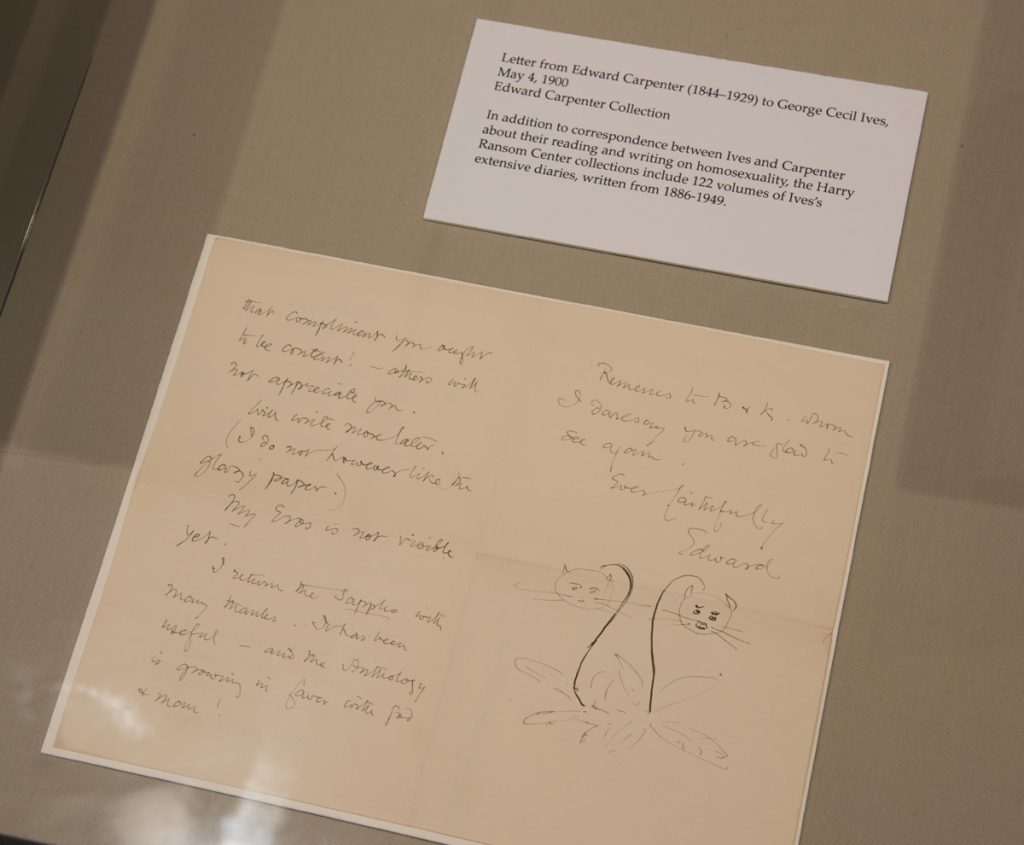 Letter from Edward Carpenter (1844–1929) to George Cecil Ives,
May 4, 1900
Edward Carpenter Collection
In addition to correspondence between Ives and Carpenter
about their reading and writing on homosexuality, the Harry
Ransom Center collections include 122 volumes of Ives's
extensive diaries, written from 1886-1949.
that compliment you ought
to be content! – others will
not appreciate you.
Will write more later.
(I do not however like the
glazy paper.)
My Eros is not visible
yet.
I return the Sappho with
many thanks. It has been
useful – and the Anthology
is growing in favor with god
& man!
to B & K. whom
I daresay you are glad to
see again.
Ever faithfully
Edward